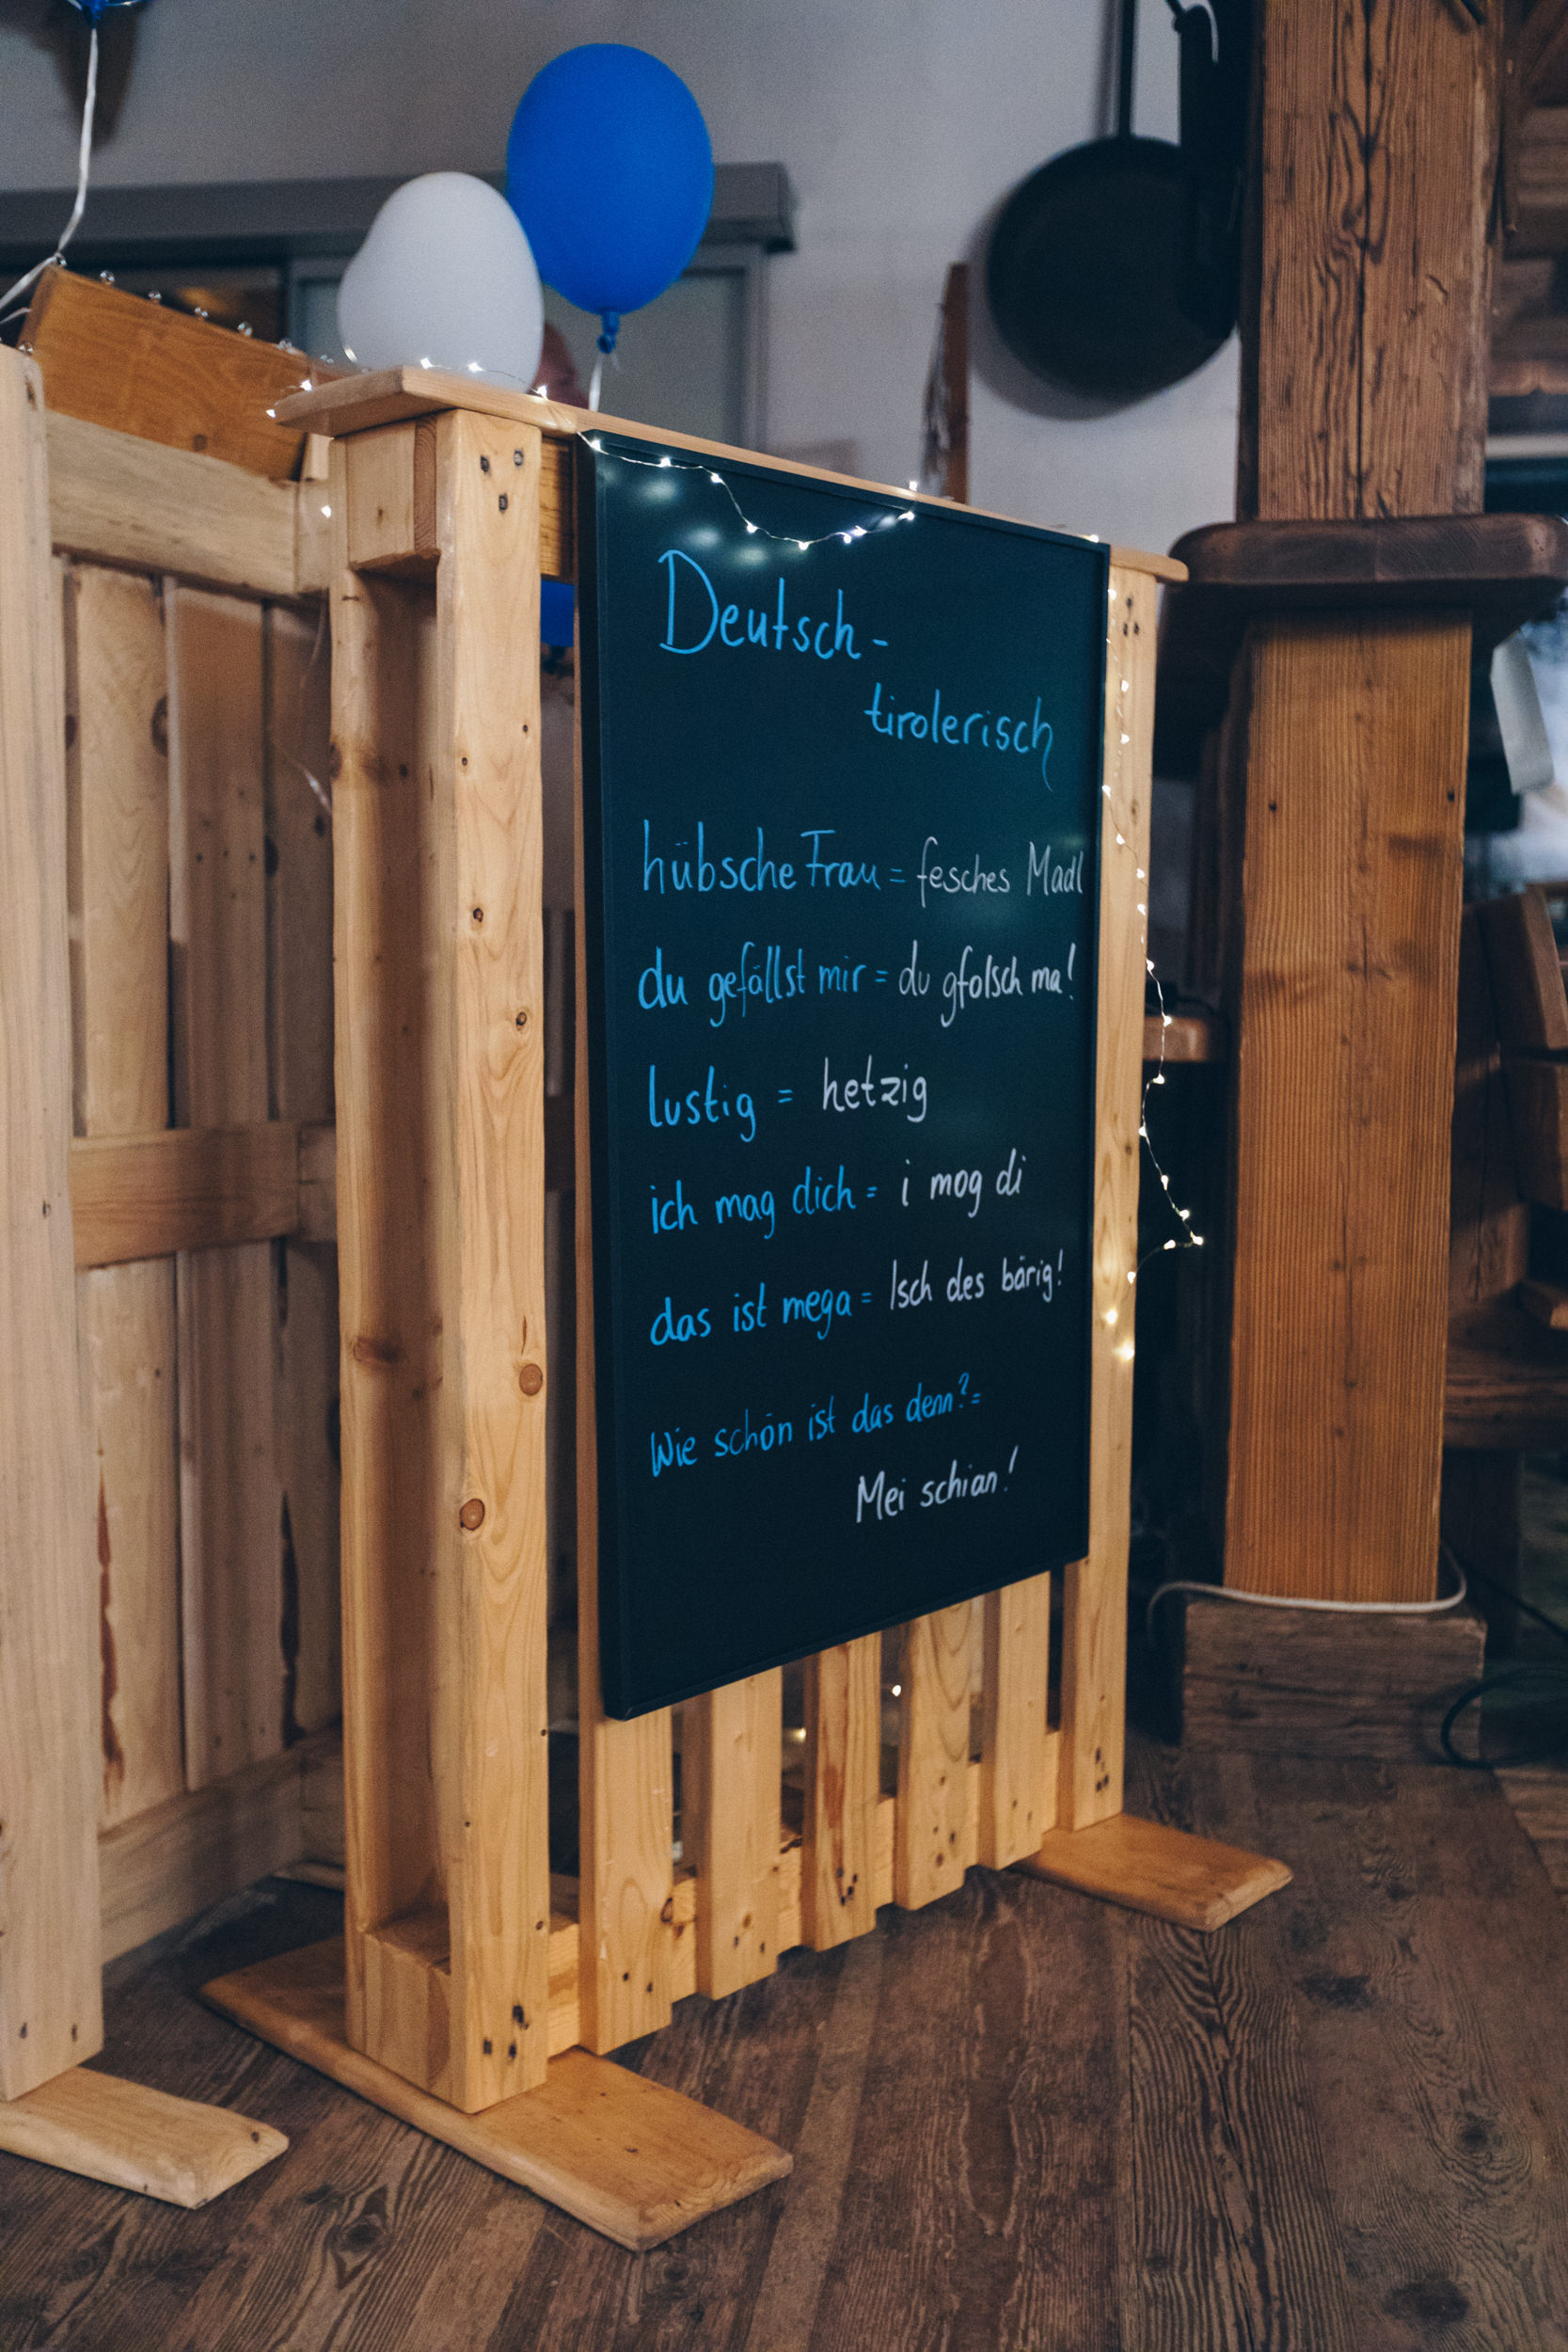 Deutsch-
tirolerisch
hübsche Frau = fesches Madl
du gefällst mir = du gfolsch ma!
lustig = hetzig
ich mag dich = i mog di
das ist mega = Isch des bärig!
Wie schön ist das denn? =
Mei schian!